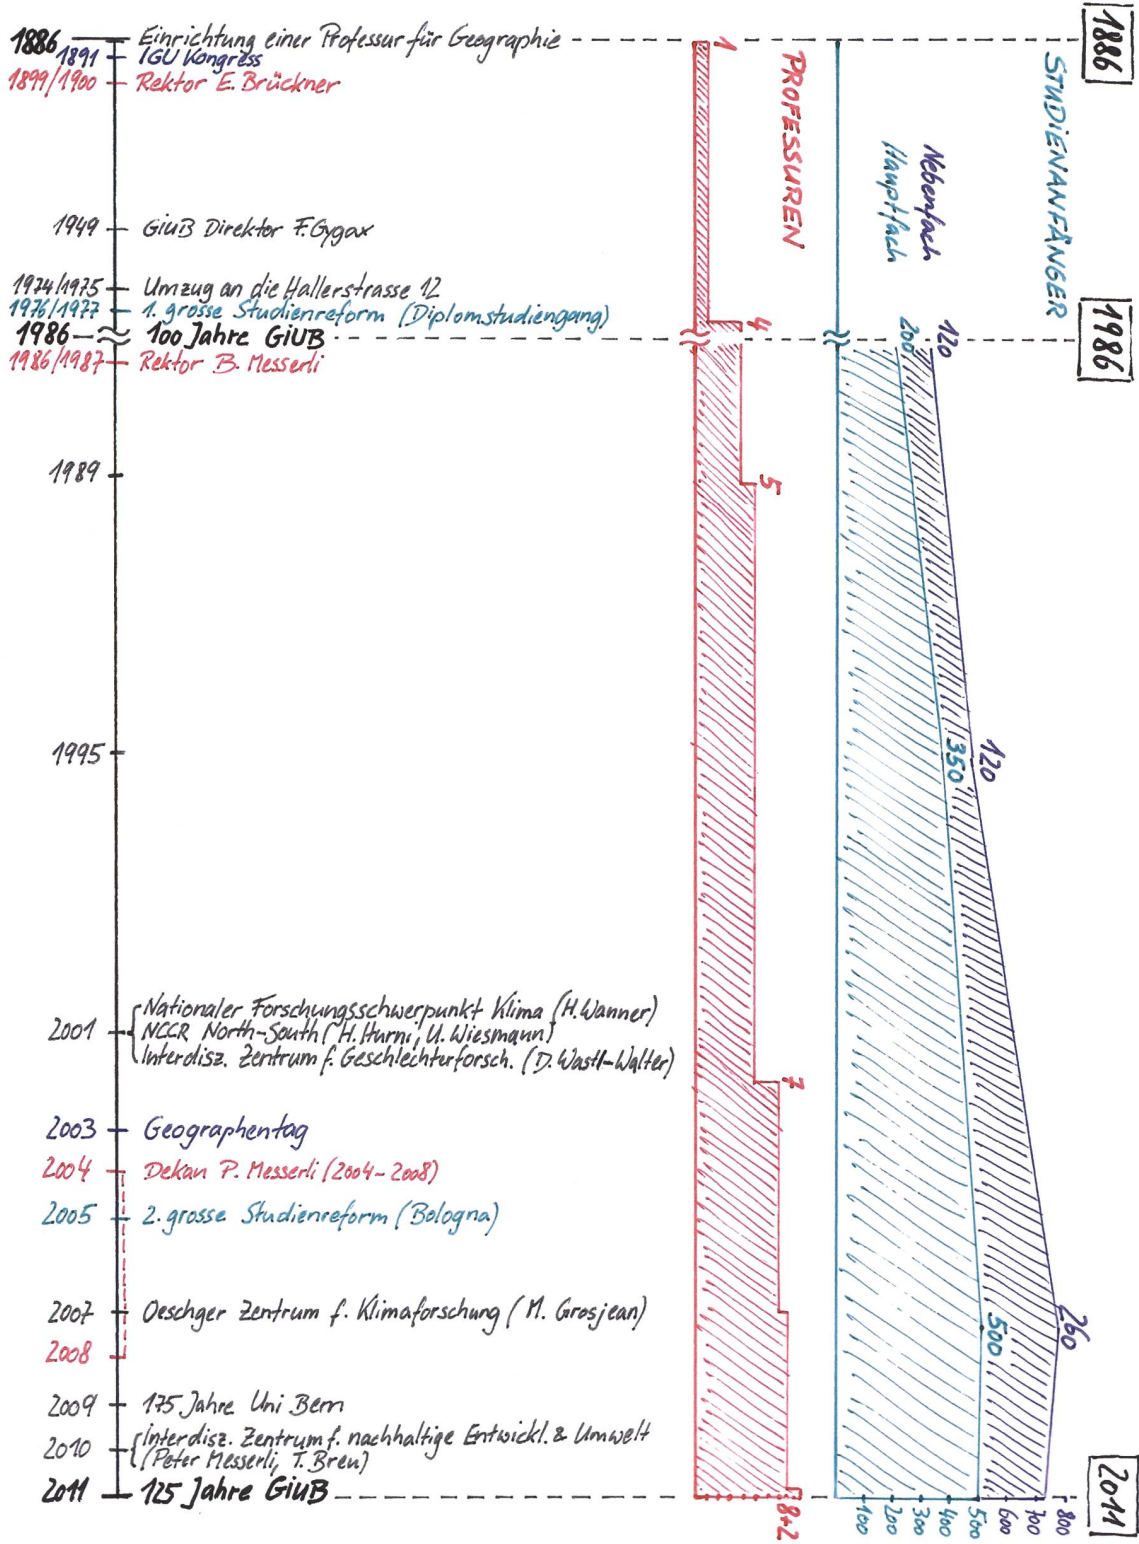 1886 Einrichtung einer Professur für Geographie
1891 IGU Kongress
1899/1900 Rektor E. Brückner
1949 GiuB Direktor F. Gygax
1974/1975 Umzug an die Hallerstrasse 12
1976/1977 1. grosse Studienreform (Diplomstudiengang)
1986 100 Jahre GiuB
1986/1987 Rektor B. Messerli
1989
1995
2001 Nationaler Forschungsschwerpunkt Klima (H. Wanner)
NCCR North-South (H. Hurni, U. Wiesmann)
Interdisz. Zentrum f. Geschlechterforsch. (D. Wastl-Walter)
2003 Geographentag
2004 Dekan P. Messerli (2004-2008)
2005 2. grosse Studienreform (Bologna)
2007 Oeschger Zentrum f. Klimaforschung (M. Grosjean)
2008
2009 175 Jahre Uni Bern
2010 Interdisz. Zentrum f. nachhaltige Entwickl. & Umwelt
(Peter Messerli, T. Breu)
2011 125 Jahre GiuB
PROFESSUREN
1
4
5
7
8+2
STUDIENANFÄNGER
Nebenfach
Hauptfach
120
200
120
350
260
500
100 200 300 400 500 600 700 800
1886
1986
2011